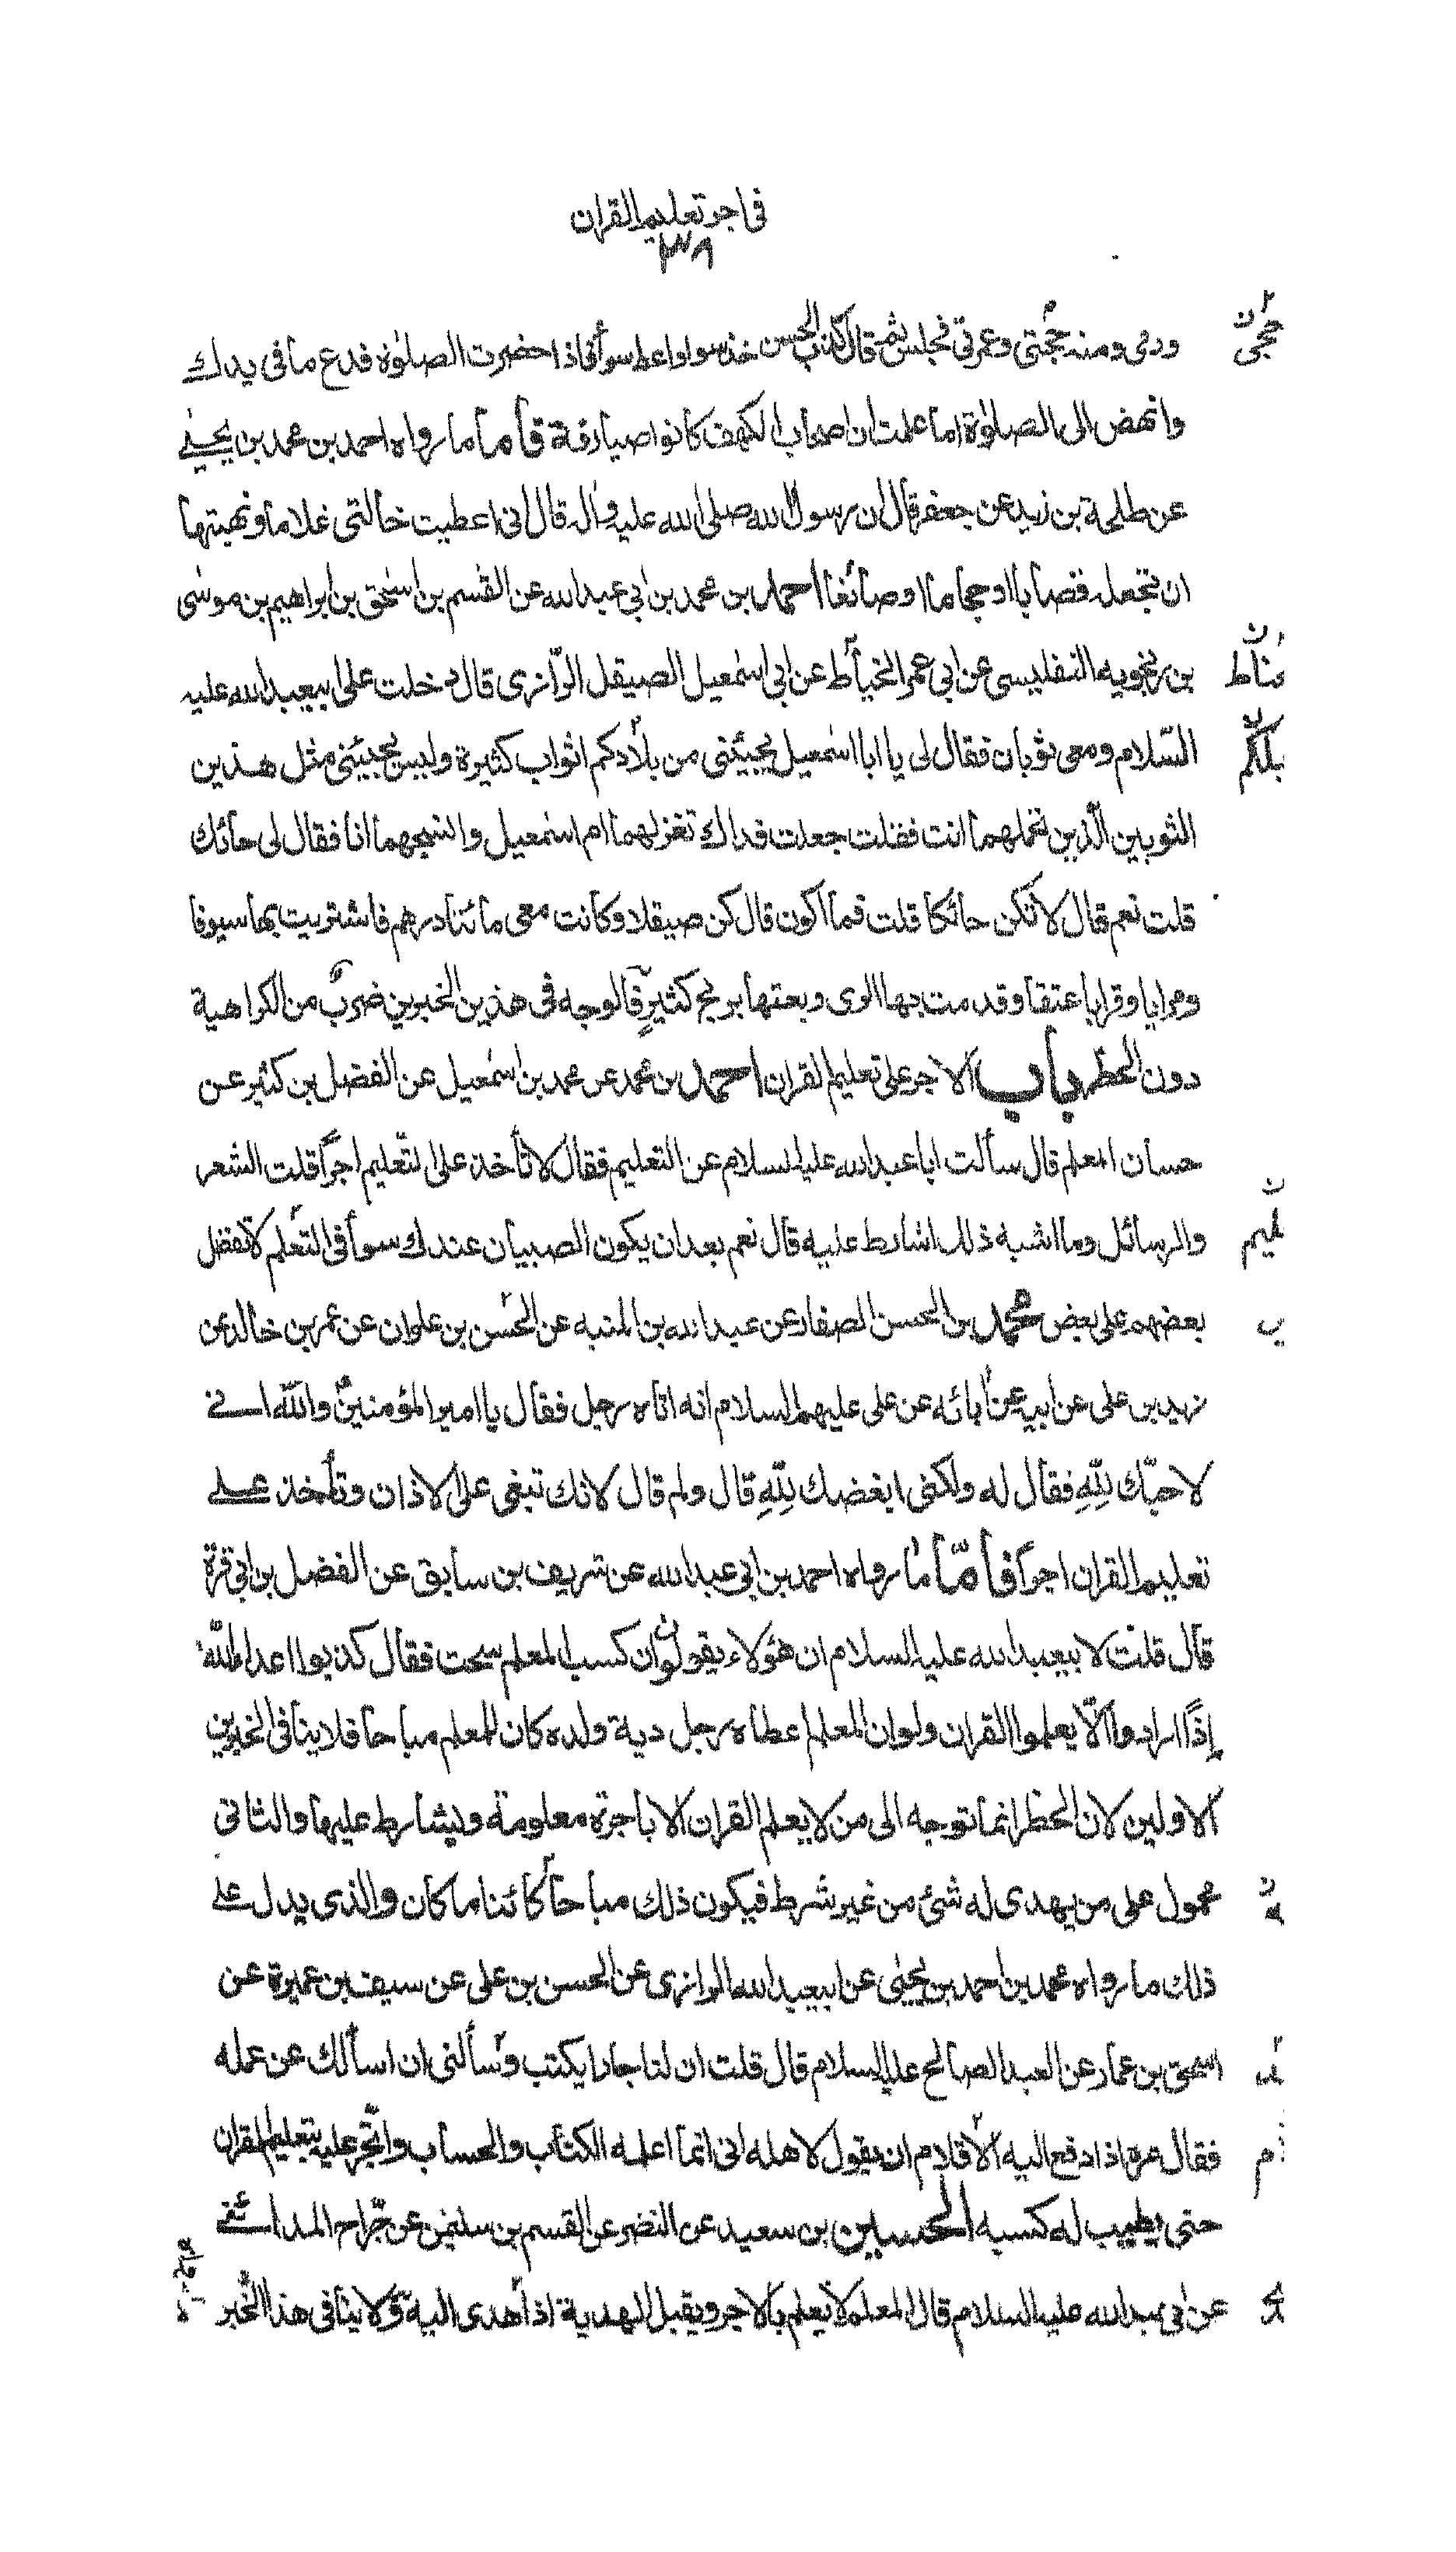 فى اجر تعليم القران
٣٨
ودمى ومنه حجّتى وعمرتى فجلس ثم قال كذب الحسن خذ سواء واعط سوآء فاذا حضرت الصلوٰة فدع ما فى يدك
حجّى ن
وانهض الى الصلوٰة اما علمت ان اصحاب الكهف كانوا صيارفة فأما ما رواه احمد بن محمد بن يحيىٰ
عن طلحة بن زيد عن جعفر قال ان رسول الله صلى الله عليه واله قال انى اعطيت خالتى غلاما ونهيتها
ان تجعله قصابا او حجاما او صائغا احمد بن محمد بن ابي عبد الله عن القٰسم بن اسحٰق بن ابراهيم بن موسىٰ
بن زنجويه التفليسى عن ابي عمر الخياط عن ابي اسمٰعيل الصيقل الرّازى قال دخلت على ابيعبد الله عليه
حناط ن
السّلام ومعى ثوبان فقال لى يا ابا اسمٰعيل يجيئنى من بلادكم اثواب كثيرة وليس يجيئنى مثل هذين
قبلكم ن
الثوبين الّذين تحملهما انت فقلت جعلت فداك تغزلهما ام اسمٰعيل وانسجهما انا فقال لى حائك
قلت نعم قال لا تكن حائكا قلت فما اكون قال كن صيقلا وكانت معى مائتا درهم فاشتريت بها سيوفا
ومرايا وقرابا عتقا وقدمت بها الرى وبعتها بربح كثيرٍ فالوجه فى هذين الخبرين ضربٌ من الكراهية
دون الحظر باب الاجر على تعليم القران احمد بن محمد عن محمد بن اسمٰعيل عن الفضل بن كثير عن
حسان المعلم قال سألت ابا عبد الله عليه السلام عن التعليم فقال لا تأخذ على التّعليم اجراً قلت الشعر
والرسائل وما اشبه ذلك اشارط عليه قال نعم بعد ان يكون الصبيان عندك سوآء فى التعلم لا تفضل
تعليم ن
بعضهم على بعض محمد بن الحسن الصفار عن عبد الله بن المنبه عن الحسن بن علوان عن عمر بن خالد عن
زيد بن على عن ابيه عن ابائه عن على عليهم السلام انه اتاه رجل فقال يا امير المؤمنين والله انى
لاحبّك لِلّهِ فقال له ولكنى ابغضك لِلّهِ قال ولم قال لانك تبغى على الاذان وتأخذ على
تعليم القران اجراً فأمّا ما رواه احمد بن ابي عبد الله عن شريف بن سابق عن الفضل بن ابي قرة
قال قلت لابيعبد الله عليه السلام ان هؤلاء يقولون ان كسب المعلم سحت فقال كذبوا اعداء الله
إذاً ارادوا الّا يعلموا القران ولو ان المعلم اعطاه رجل دية ولده كان للمعلم مباحا فلا ينافى الخبرين
الاولين لان الحظر انما توجه الى من لا يعلم القران الا باجرة معلومة ويشارط عليها والثانى
محمول على من يهدى له شئ من غير شرط فيكون ذلك مباحاً كائنا ما كان والذى يدل على
ذلك ما رواه محمد بن احمد بن يحيىٰ عن ابيعبد الله الرازى عن الحسن بن على عن سيف بن عميرة عن
اسحق بن عمار عن العبد الصالح عليه السلام قال قلت ان لنا جارا يكتب وسألنى ان اسألك عن عمله
فقال مره اذا دفع اليه الاقلام ان يقول لاهله انى انما اعلمه الكتاب والحساب واتّجر عليه بتعليم القران
حتى يطيب له كسبه الحسين بن سعيد عن النضر عن القسم بن سليمن عن جرّاح المدائنى
عن ابي عبد الله عليه السلام قال المعلم لا يعلم بالاجر ويقبل الهدية اذا اهدى اليه ولا ينافى هذا الخبر